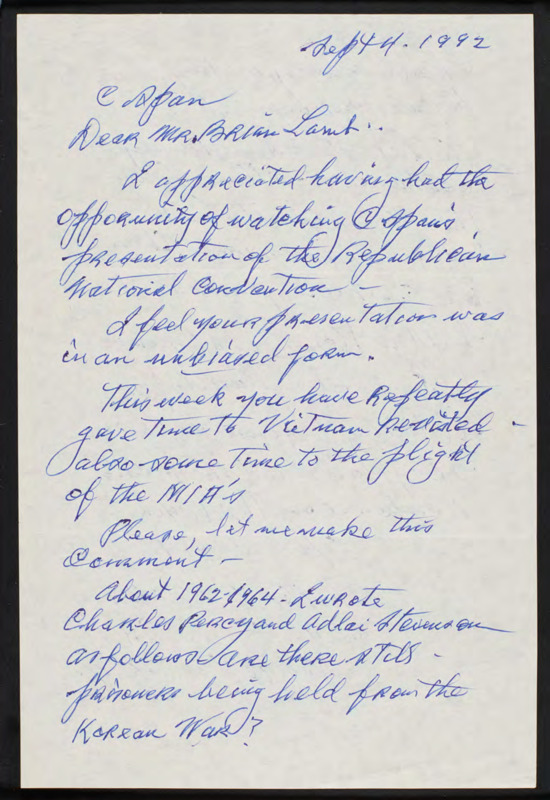 Sept 4. 1992
C Span
Dear Mr. Brian Lamb..
I appreciated having had the
opporunity of watching C Span's
presentation of the Republican
National Convention -
I feel your presentation was
in an unbiased form.
This week you have repeatly
gave time to Vietnam Revisited -
also some time to the plight
of the MIA's
Please, let me make this
Comment -
About 1962-1964 - I wrote
Charles Percy and Adlai Stevenson
as follows - are there still -
prisoners being held from the
Korean War?